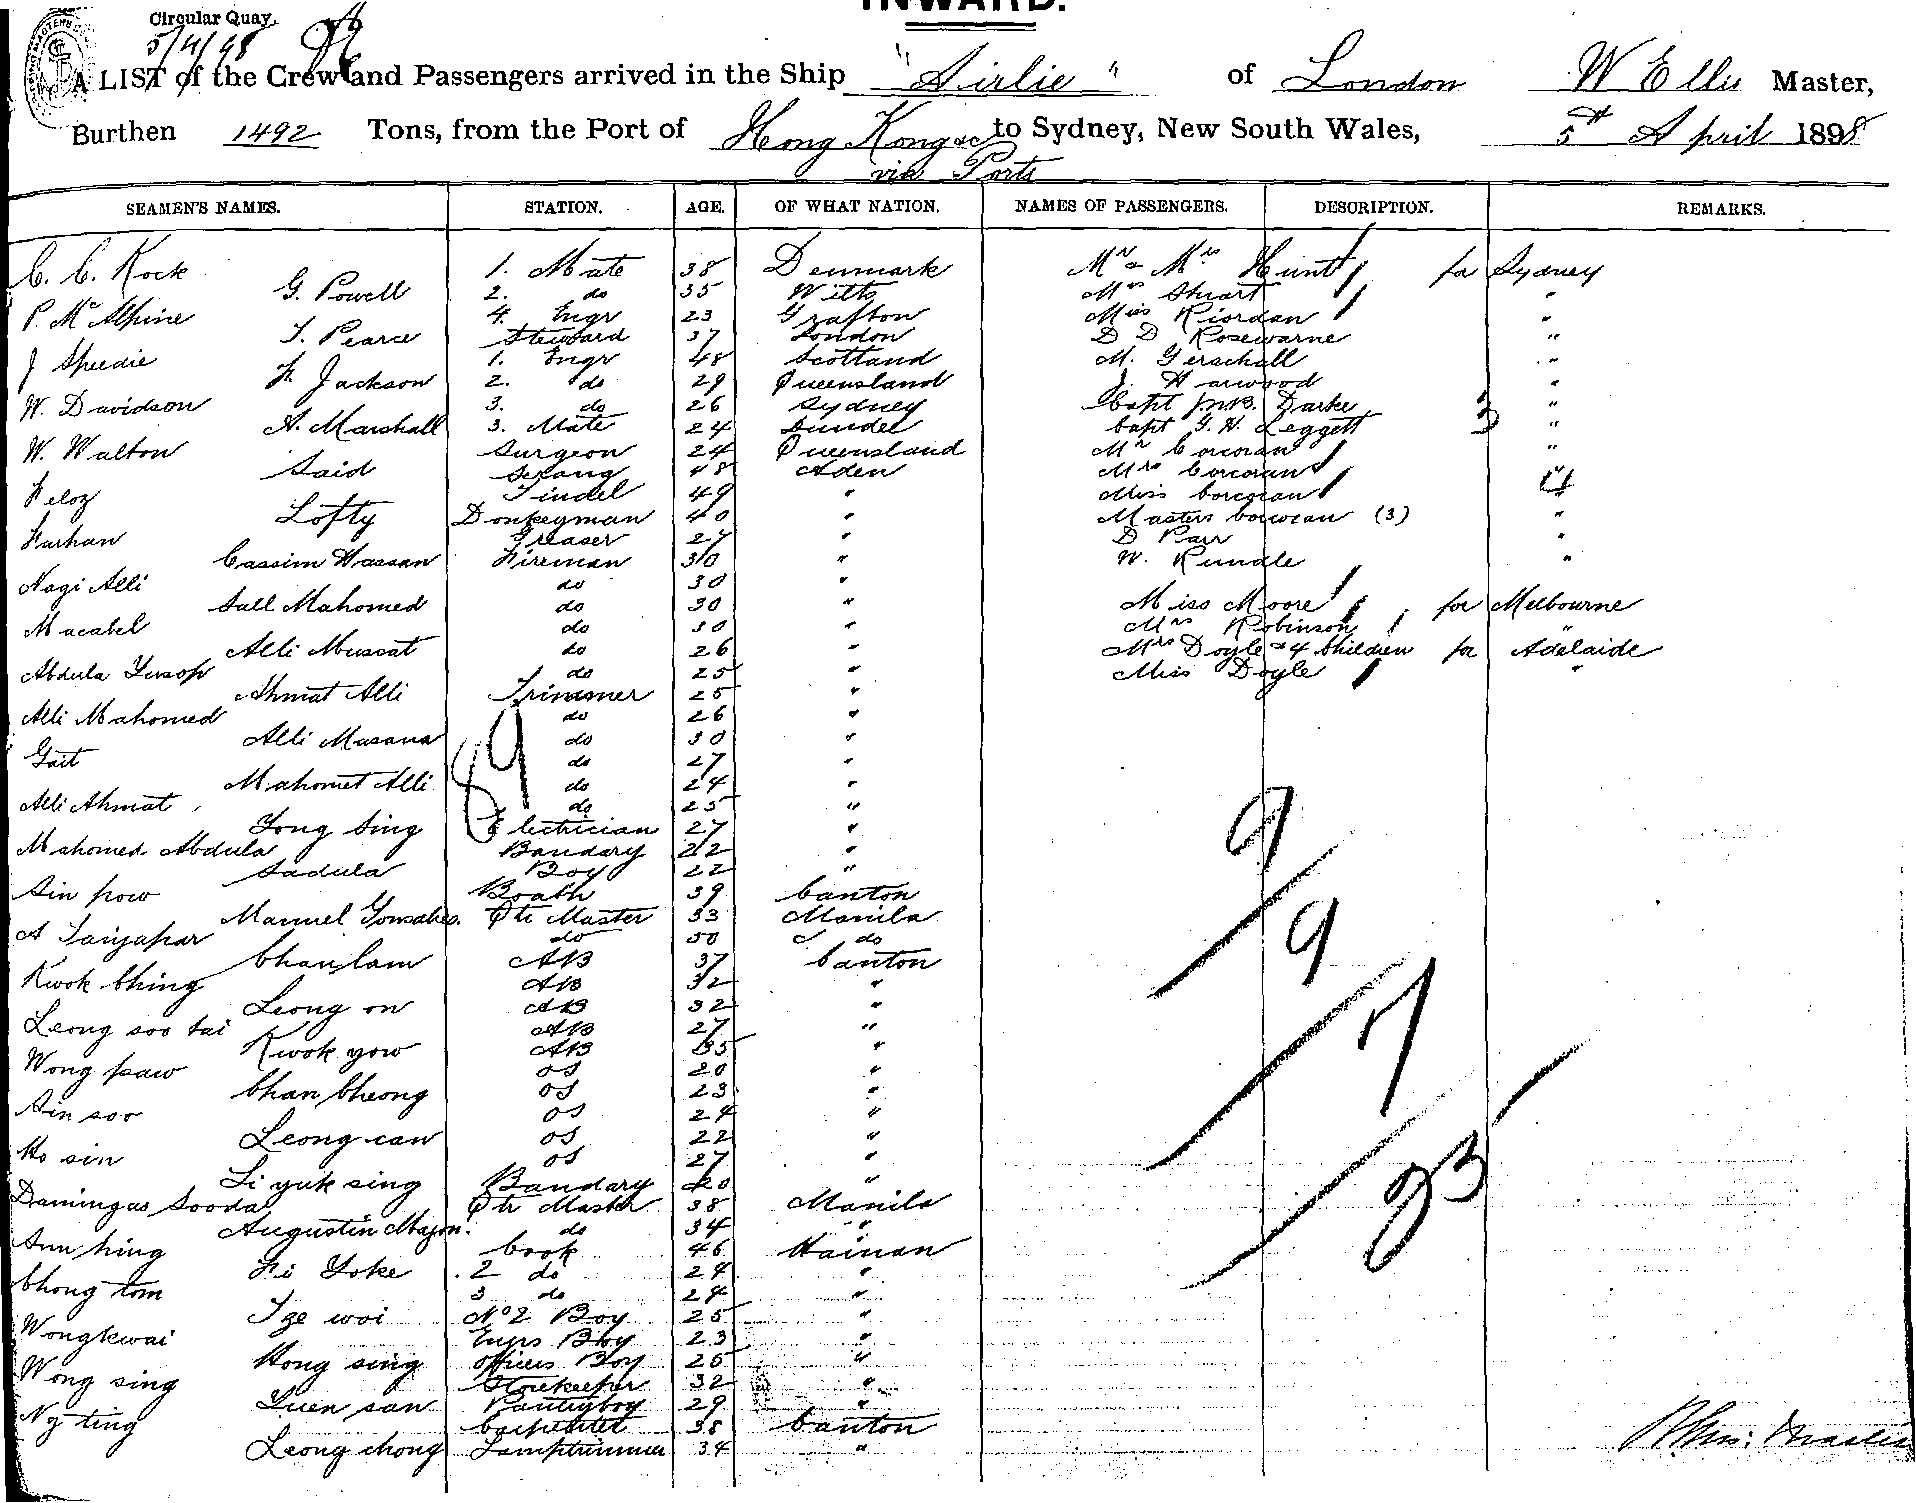 INWARD.
Circular Quay,
5/4/98
A LIST of the Crew and Passengers arrived in the Ship "Airlie" of London W Ellis Master,
Burthen 1492 Tons, from the Port of Hong Kong to Sydney, New South Wales, 5th April 1898
via Ports
SEAMEN'S NAMES. STATION. AGE. OF WHAT NATION. NAMES OF PASSENGERS. DESCRIPTION. REMARKS.
C. C. Kock 1. Mate 38 Denmark Mr & Mrs Hunt for Sydney
G. Powell 2. do 35 Wilts Mrs Stuart "
P. McAlpine 4. Engr 23 Grafton Miss Riordan "
T. Pearce Steward 37 London D D Rosewarne "
J Speedie 1. Engr 48 Scotland M. Gerschell "
F. Jackson 2. do 29 Queensland J. Harwood "
W. Davidson 3. do 26 Sydney Capt Darke 3 "
A. Marshall 3. Mate 24 Dundee Capt G. H. Leggett "
W. Walton Surgeon 24 Queensland Mr Corcoran "
Said Serang 48 Aden Mrs Corcoran
Feloz Tindel 49 " Miss Corcoran 4
Lofty Donkeyman 40 " Masters Corcoran (3) "
Farhan Greaser 27 " D Parr "
Cassim Hassan Fireman 30 " W. Rundle "
Nagi Alli do 30 "
Sall Mahomed do 30 " Miss Moore for Melbourne
Macabel do 30 " Mrs Robinson "
Alli Muscat do 26 " Mrs Doyle & 4 Children for Adelaide
Abdula Yusop do 25 " Miss Doyle "
Ahmat Alli Trimmer 25 "
Alli Mahomed do 26 "
Alli Masana do 30 "
Gait do 27 "
Mahomet Alli do 24 "
Alli Ahmat do 25 "
Tong Sing Electrician 27 "
Mahomed Abdula Bandary 22 "
Sadula Boy 22 "
Sin pow 39 Canton
Manuel Gonsales. Qtr Master 33 Manila
A Taiyapar do 50 do
Chan lam AB 37 Canton
Kwok Ching AB 32 "
Leong on AB 32 "
Leong soo tai AB 27 "
Kwok yow AB 35 "
Wong paw OS 20 "
Chan Cheong OS 23 "
Sin soo OS 24 "
Leong can OS 22 "
Ho sin OS 27 "
Li yuk sing Bandary 20 "
Damingas Sooda Qtr Master 38 Manila
Augustin Majon. do 34 "
Sun hing Cook 46 Hainan
Fi Yoke 2 do 24 "
Chong tom 3 do 24 "
Tze woi No 2 Boy 25 "
Wong kwai Engrs Boy 23 "
Hong sing Officers Boy 25 "
Wong sing Storekeeper 32 "
Yuen san Pantryboy 29 "
Ng ting Carpenter 38 Canton
Leong chong Lamptrimmer 34 "
89
9
9
17
83
Master